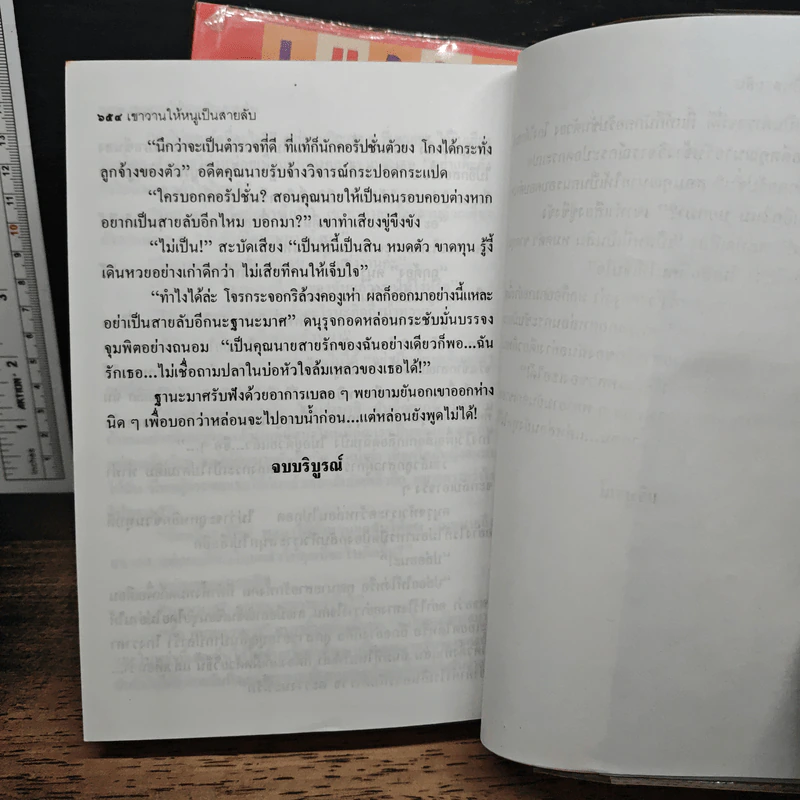 ๖๕๔ เขาวานให้หนูเป็นสายลับ
“นึกว่าจะเป็นตำรวจที่ดี ที่แท้ก็นักคอรัปชั่นตัวยง โกงได้กระทั่ง
ลูกจ้างของตัว” อดีตคุณนายรับจ้างวิจารณ์กระปอดกระแปด
“ใครบอกคอรัปชั่น? สอนคุณนายให้เป็นคนรอบคอบต่างหาก
อยากเป็นสายลับอีกไหม บอกมา?” เขาทำเสียงขู่ขึงขัง
“ไม่เป็น!” สะบัดเสียง “เป็นหนี้เป็นสิน หมดตัว ขาดทุน รู้งี้
เดินหวยอย่างเก่าดีกว่า ไม่เสียทีคนให้เจ็บใจ”
“ทำไงได้ล่ะ โจรกระจอกริล้วงคองูเห่า ผลก็ออกมาอย่างนี้แหละ
อย่าเป็นสายลับอีกนะฐานะมาศ” ดนุรุจกอดหล่อนกระชับมั่นบรรจง
จุมพิตอย่างถนอม “เป็นคุณนายสายรักของฉันอย่างเดียวก็พอ...ฉัน
รักเธอ...ไม่เชื่อถามปลาในบ่อหัวใจล้มเหลวของเธอได้!”
ฐานะมาศรับฟังด้วยอาการเบลอ ๆ พยายามยันอกเขาออกห่าง
นิด ๆ เพื่อบอกว่าหล่อนจะไปอาบน้ำก่อน...แต่หล่อนยังพูดไม่ได้!
จบบริบูรณ์
10
9
3
2
ACTION
inches